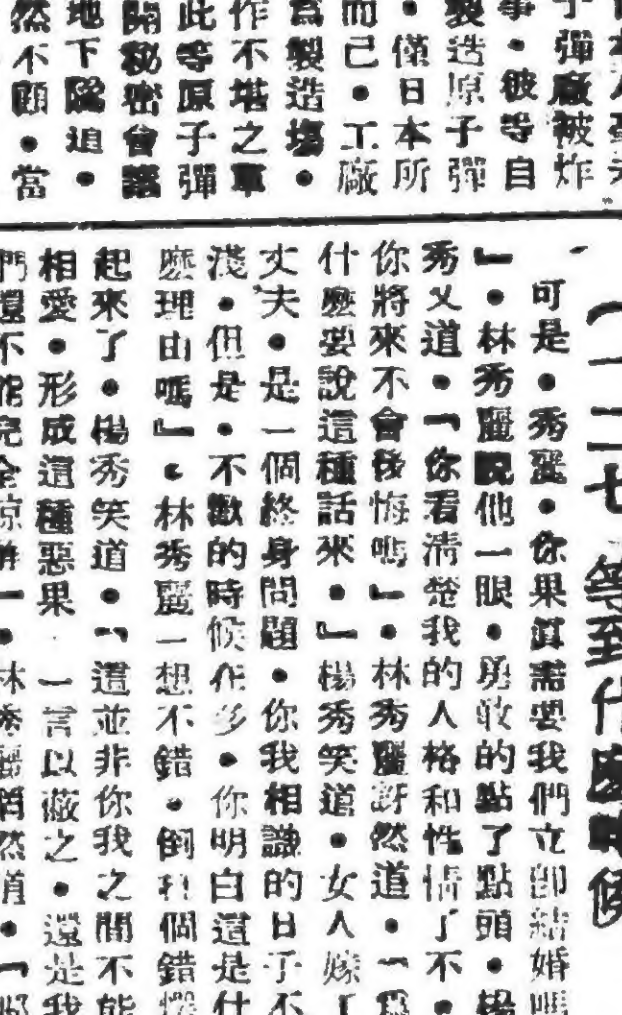 子彈廠被炸
事・彼等自
製造原子彈
・僅日本所
而己・工廠
為製造場・
作不堪之軍
此等原子彈
開秘密會議
地下隧道・
然不顧・當
（一二七 等到什麼時候
可是・秀麗・你果眞需要我們立卽結婚嗎
』・林秀麗睨他一眼・勇敢的點了點頭・楊
秀又道・『你看清楚我的人格和性情了不・
你將來不會後悔嗎』・林秀麗訝然道・『爲
什麼要說這種話來・』楊秀笑道・女人嫁了
丈夫・是一個終身問題・你我相識的日子不
淺・但是・不歡的時候在多・你明白這是什
麽理由嗎』・林秀麗一想不錯・倒有個錯
起來了・楊秀笑道・『這並非你我之間不能
相愛・形成這種惡果 一言以蔽之・還是我
們還不能完全諒解』・林秀麗悄然道・『